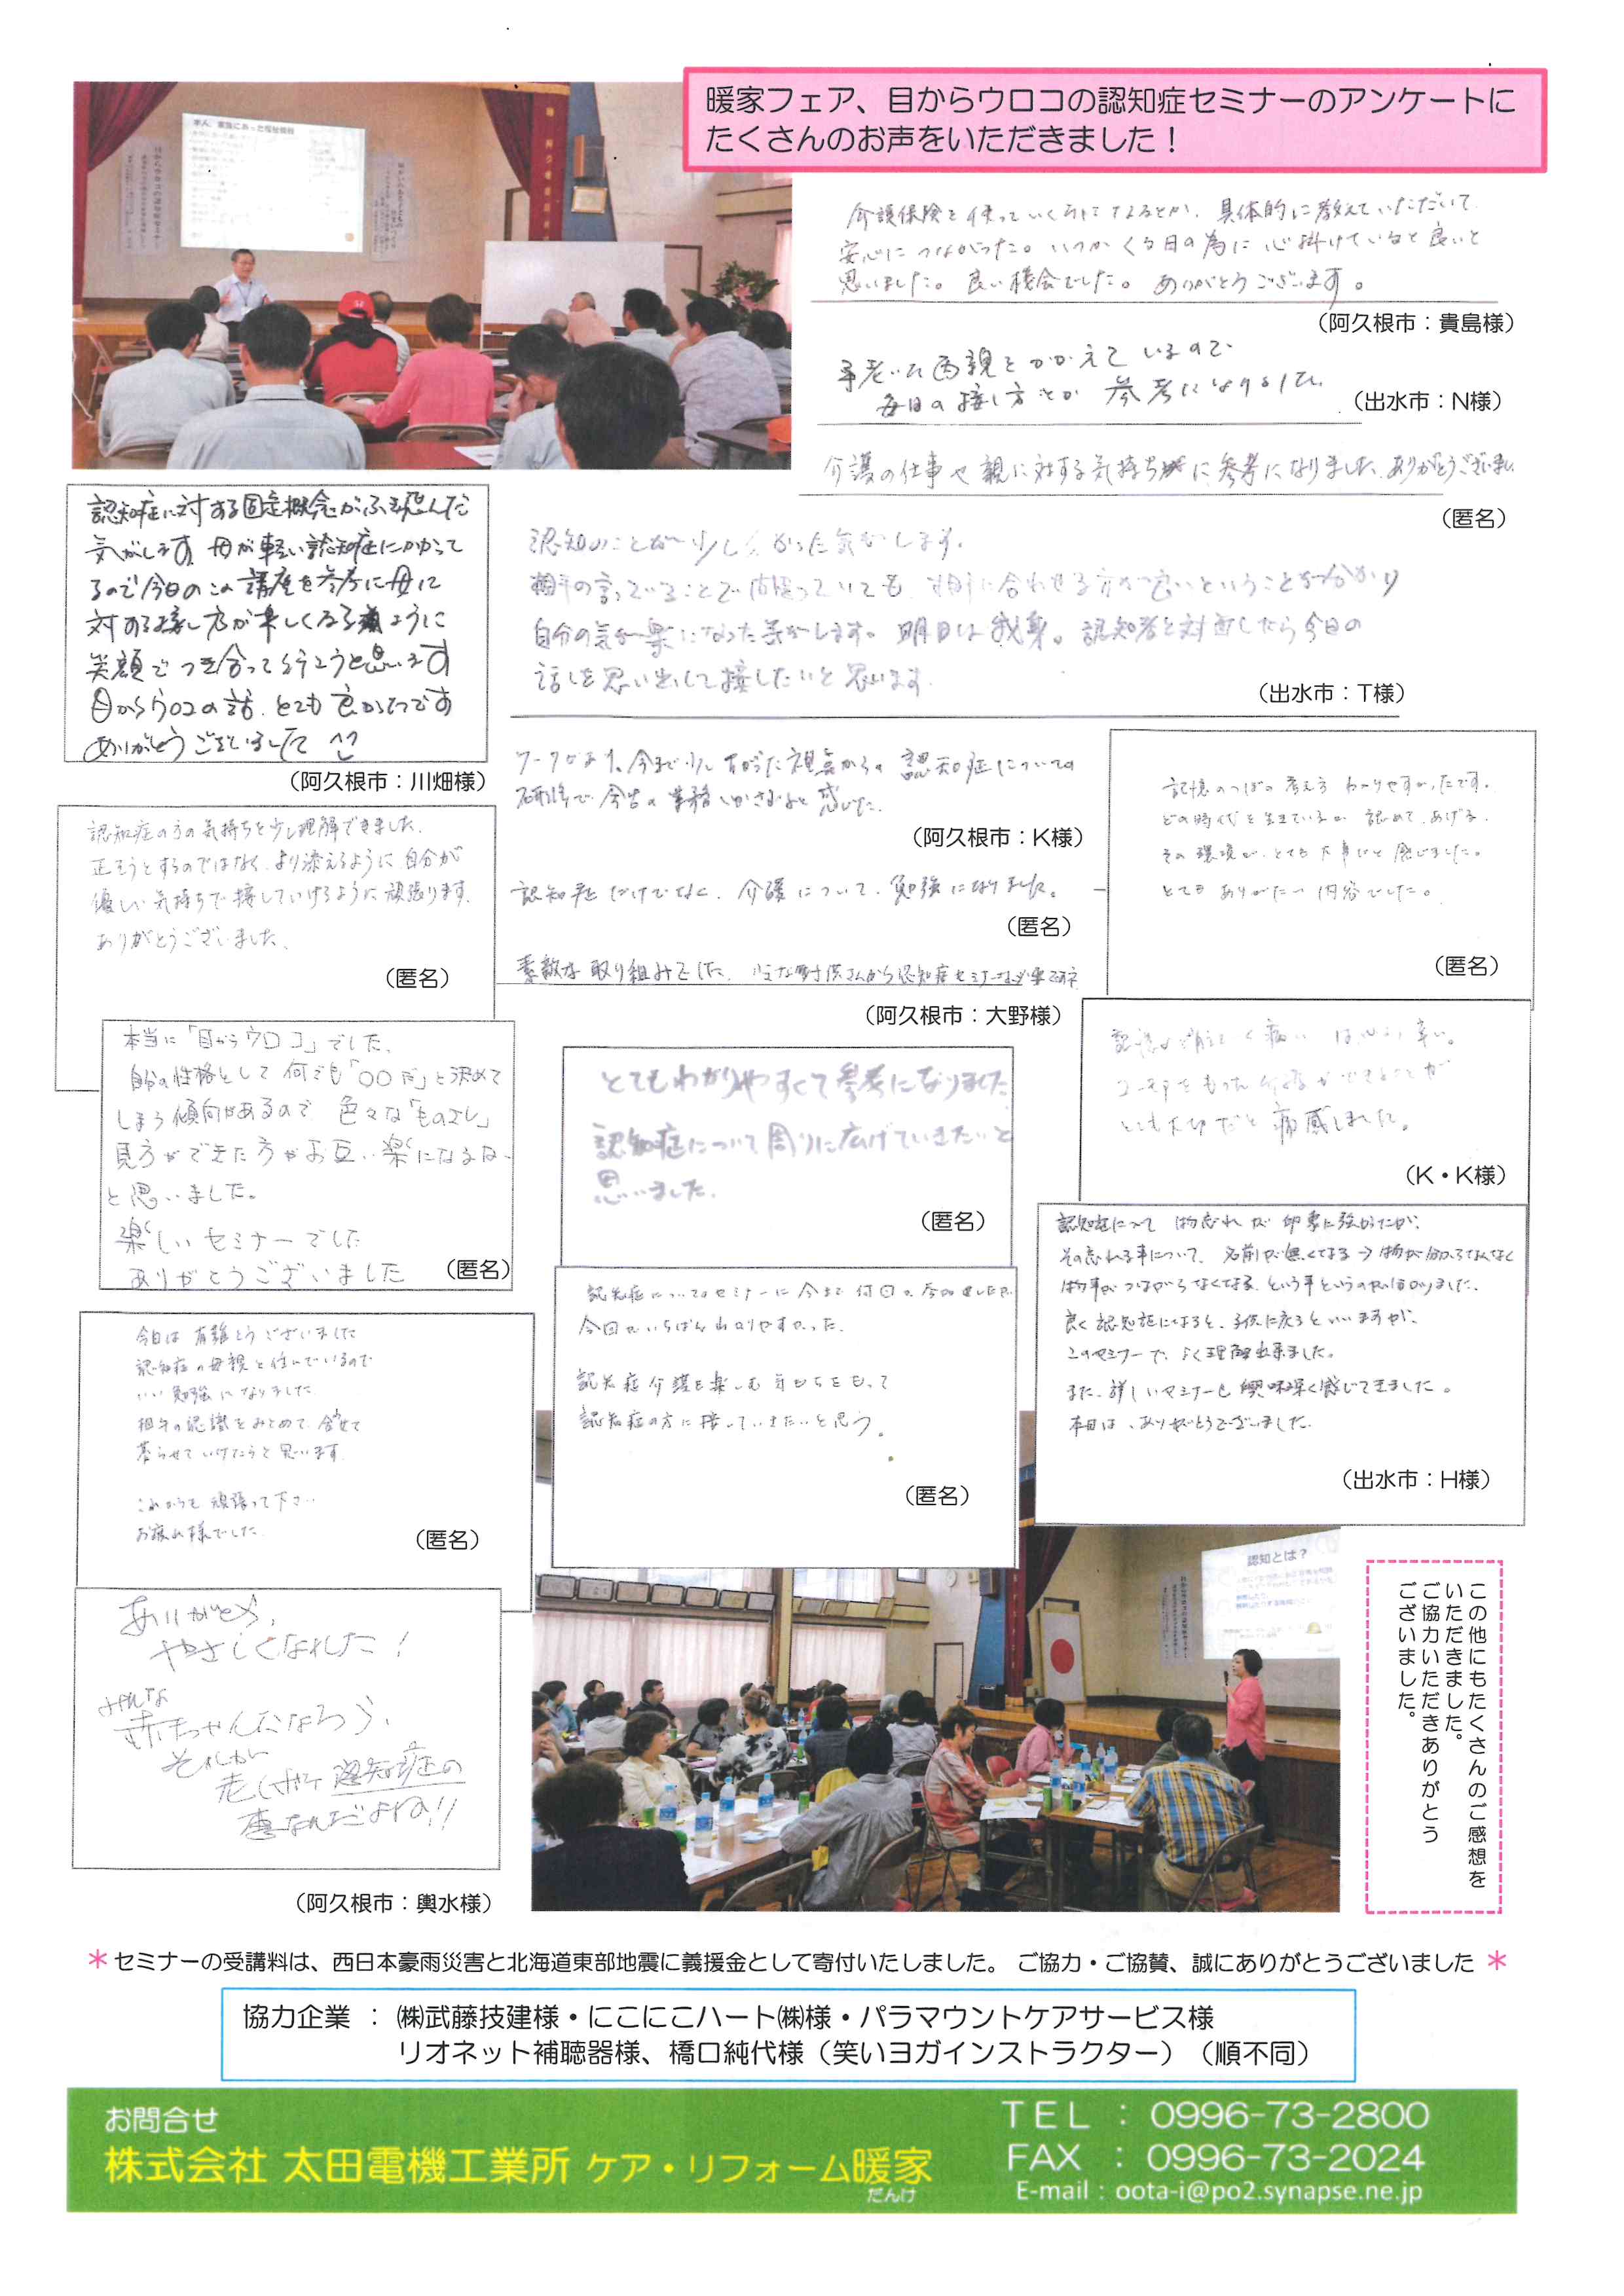 暖家フェア、目からウロコの認知症セミナーのアンケートに
たくさんのお声をいただきました！
本人、家族にあった福祉情報
介護保険を使っていくらになるとか、具体的に教えていただいて
安心につながった。いつかくる日の為に心掛けていると良いと
思いました。良い機会でした。ありがとうございます。
（阿久根市：貴島様）
年老いた両親をかかえているので
毎日の接し方とか参考になりました。
（出水市：N様）
介護の仕事や親に対する気持ちに参考になりました。ありがとうございました
（匿名）
認知症に対する固定概念がふき飛んだ
気がします。母が軽い認知症にかかって
るので今日のこの講座を参考に母に
対する接し方が楽しくなるように
笑顔でつき合って行こうと思います
目からウロコの話、とても良かったです
ありがとうございました ^^
（阿久根市：川畑様）
認知のことが少し分かった気がします。
相手の言っていることで間違っていても、相手に合わせる方が良いということが分かり
自分の気が楽になった気がします。明日は我身。認知者と対面したら今日の
話しを思い出して接したいと思います。
（出水市：T様）
ワークがあり、今まで少し下がった視点からの認知症についての
研修で今後の業務にいかせると感じた。
（阿久根市：K様）
認知症だけでなく、介護について、勉強になりました。
（匿名）
素敵な取り組みでした。
（阿久根市：大野様）
記憶のつぼの考え方わかりやすかったです。
どの時代を生きているか認めてあげる、
その環境が、とても大事だと感じました。
とてもありがたい内容でした。
（匿名）
認知症の方の気持ちを少し理解できました。
正そうとするのではなく、より添えるように自分が
優しい気持ちで接していけるように頑張ります。
ありがとうございました。
（匿名）
本当に「目からウロコ」でした。
自分の性格として何でも「○○だ」と決めて
しまう傾向があるので色々な「ものさし」
見方ができた方がお互い楽になるな
と思いました。
楽しいセミナーでした
ありがとうございました
（匿名）
とてもわかりやすくて参考になりました
認知症について周りに広げていきたいと
思いました。
（匿名）
記憶が消えていく病いは心より辛い。
ユーモアをもった介護ができることが
とても大切だと痛感しました。
（K・K様）
認知症について物忘れが印象に強かったが、
その忘れる事について、名前が無くなる→物が分からなくなる
物事がつながらなくなる、という事というのが分かりました。
良く認知症になると、子供に戻るといいますが、
このセミナーで、よく理解出来ました。
また、詳しいセミナーも興味深く感じてきました。
本日は、ありがとうございました。
（出水市：H様）
今日は有難とうございました
認知症の母親と住んでいるので
いい勉強になりました
相手の認識をみとめて、合せて
暮らせていけたらと思います。
これからも頑張って下さい
お疲れ様でした
（匿名）
認知症についてのセミナーに今まで何回か参加しましたが、
今回がいちばんわかりやすかった。
認知症介護を楽しむ気もちをもって
認知症の方に接っしていきたいと思う。
（匿名）
ありがとう、
やさしくなれた！
みんな
赤ちゃんになろう、
それから
認知症の
（阿久根市：輿水様）
認知とは？
この他にもたくさんのご感想を
いただきました。
ご協力いただきありがとう
ございました。
＊セミナーの受講料は、西日本豪雨災害と北海道東部地震に義援金として寄付いたしました。 ご協力・ご協賛、誠にありがとうございました＊
協力企業 ： ㈱武藤技建様・にこにこハート㈱様・パラマウントケアサービス様
リオネット補聴器様、橋口純代様（笑いヨガインストラクター）（順不同）
お問合せ
株式会社 太田電機工業所 ケア・リフォーム暖家
だんけ
ＴＥＬ ： 0996-73-2800
FAX ： 0996-73-2024
E-mail : oota-i@po2.synapse.ne.jp